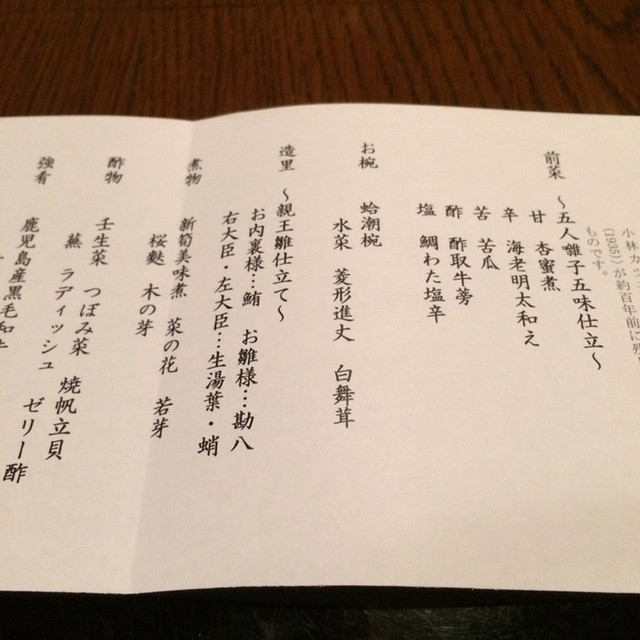 小林カ
(1935)が約百年前に残
ものです。
前菜 ～五人囃子五味仕立～
甘 杏蜜煮
辛 海老明太和え
苦 苦瓜
酢 酢取牛蒡
塩 鯛わた塩辛
お椀 蛤潮椀
水菜 菱形進丈 白舞茸
造里 ～親王雛仕立て～
お内裏様…鮪 お雛様…勘八
右大臣・左大臣…生湯葉・蛸
煮物 新筍美味煮 菜の花 若芽
桜麩 木の芽
酢物 壬生菜 つぼみ菜 焼帆立貝
蕪 ラディッシュ ゼリー酢
強肴 鹿児島産黒毛和牛